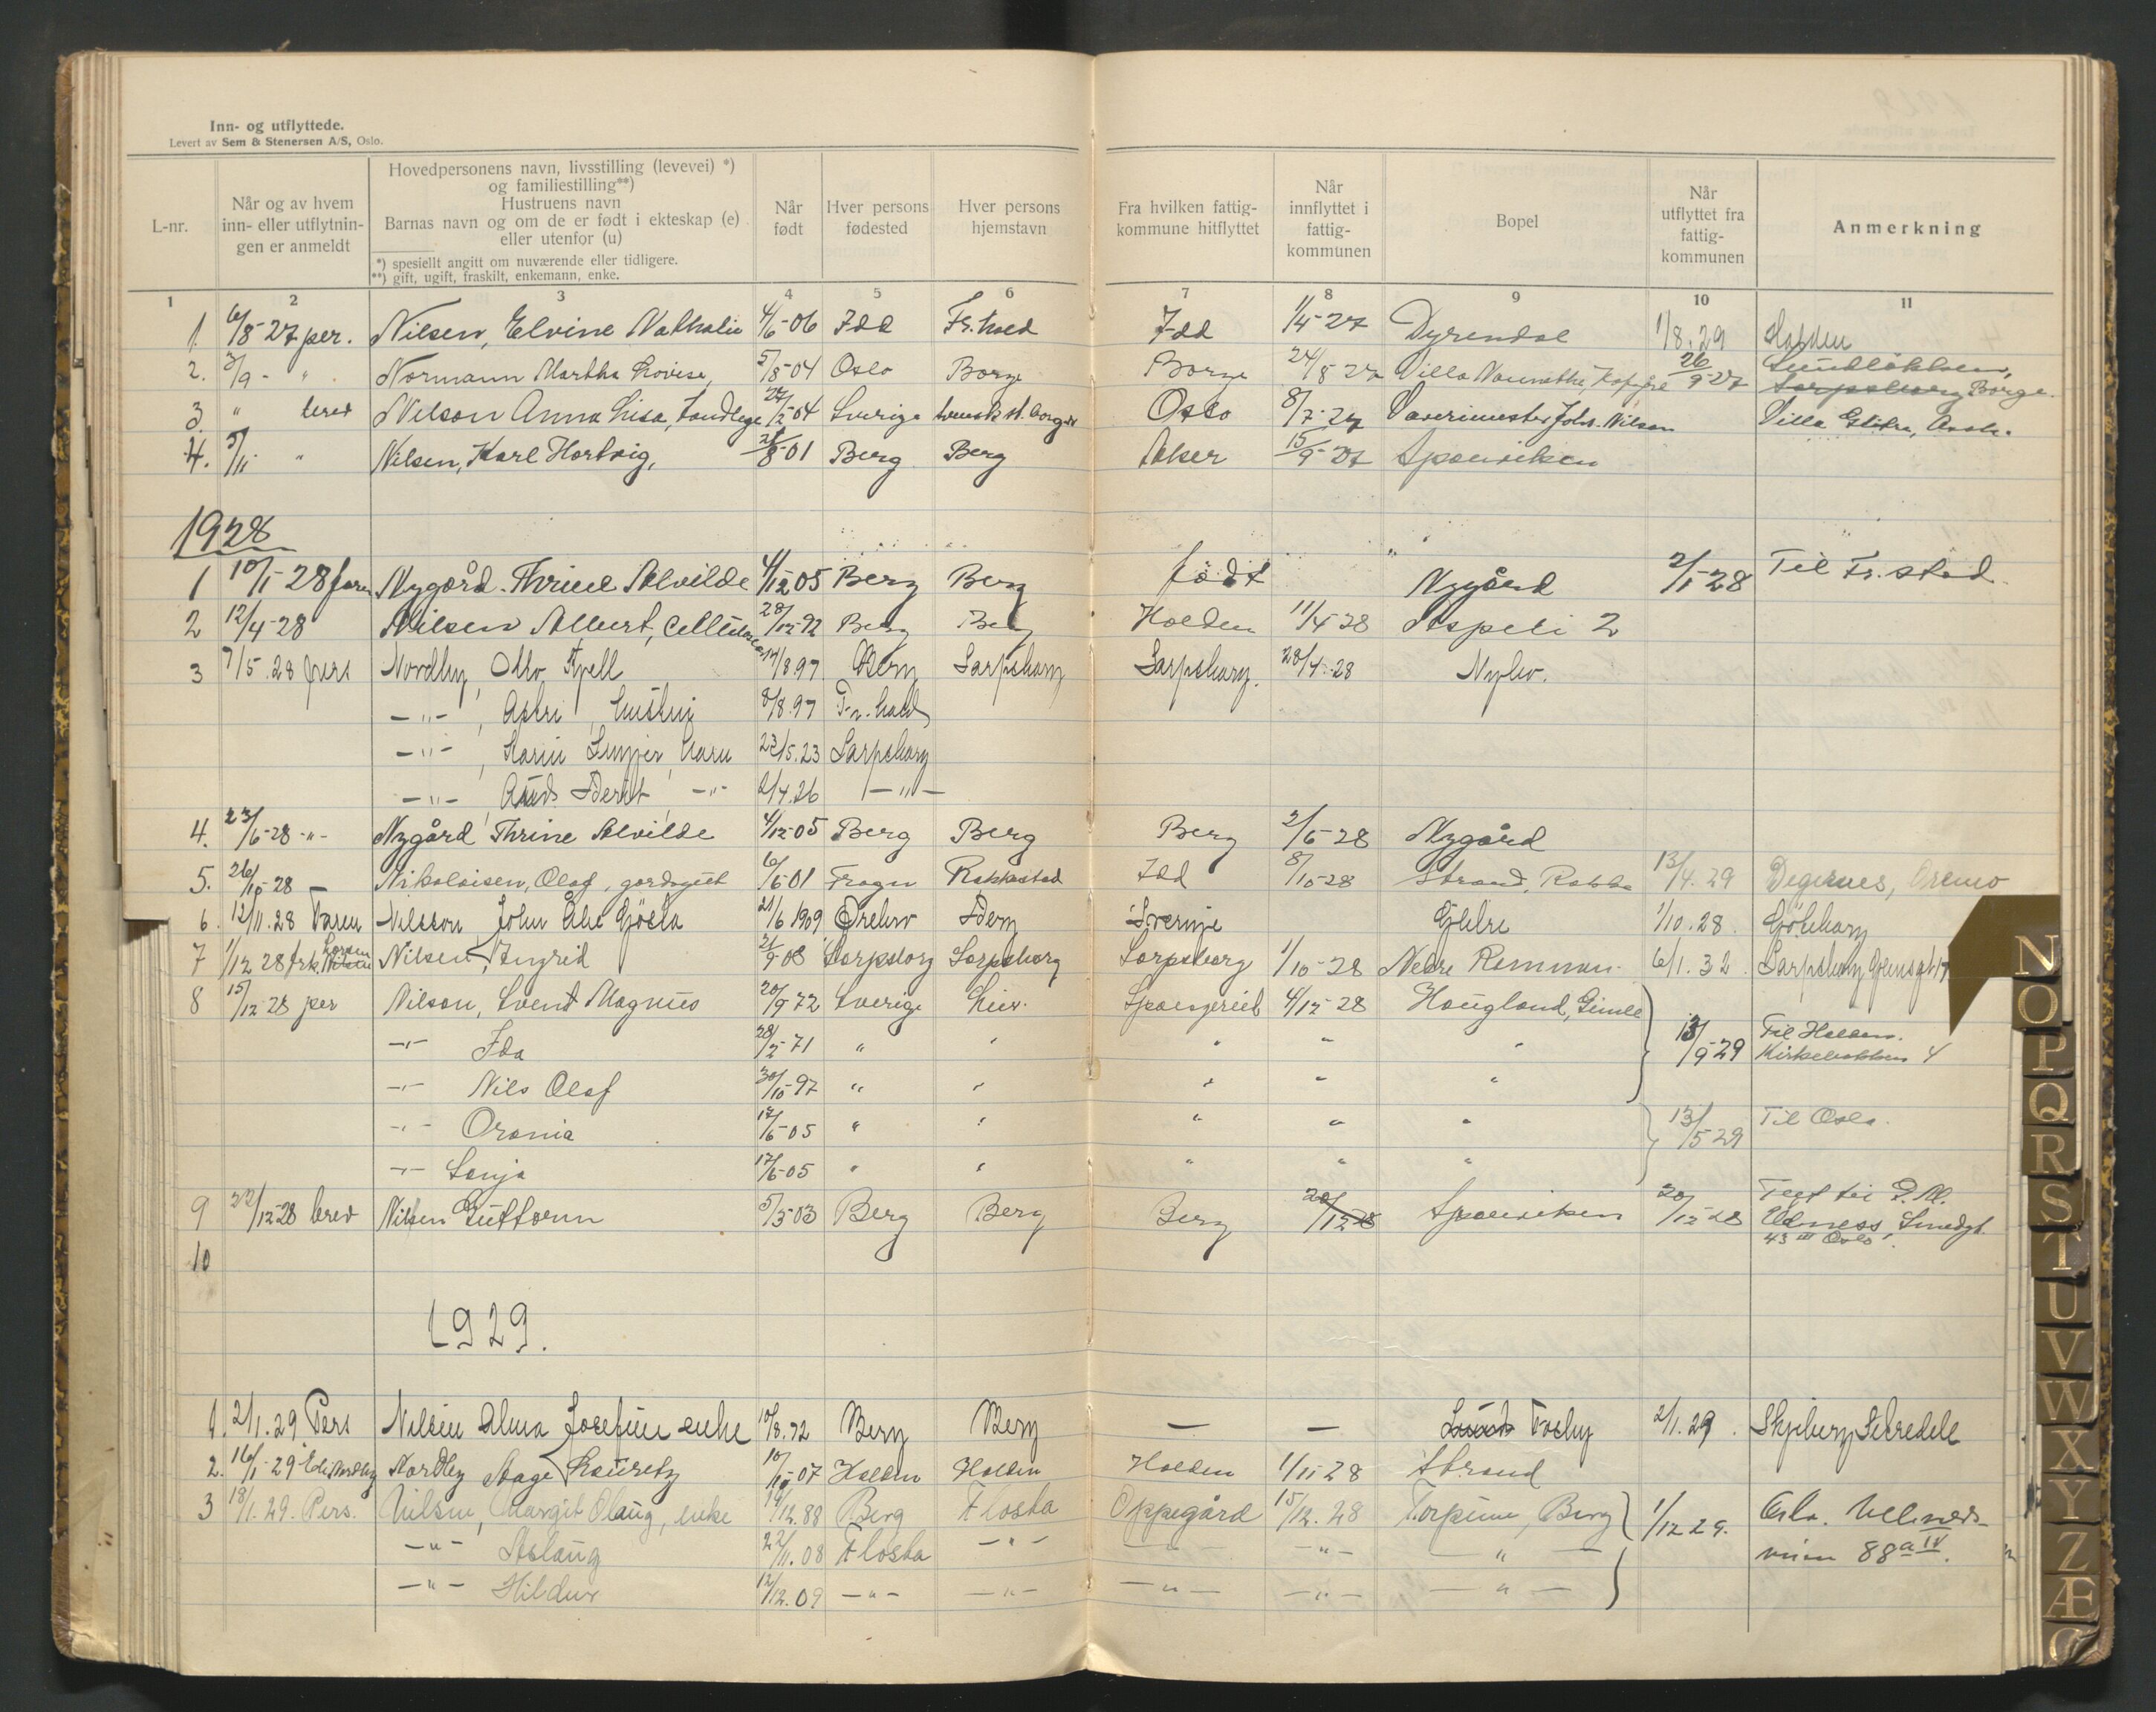 Inn- og utflyttede.
Levert av Sem & Stenersen A/S, Oslo.
L-nr.
Når og av hvem
inn- eller utflytnin-
gen er anmeldt
Hovedpersonens navn, livsstilling (levevei) *)
og familiestilling**)
Hustruens navn
Barnas navn og om de er født i ekteskap (e)
eller utenfor (u)
*) spesiellt angitt om nuværende eller tidligere.
**) gift, ugift, fraskilt, enkemann, enke.
Når
født
Hver persons
fødested
Hver persons
hjemstavn
Fra hvilken fattig-
kommune hitflyttet
Når
innflyttet i
fattig-
kommunen
Bopel
Når
utflyttet fra
fattig-
kommunen
Anmerkning
1 2 3 4 5 6 7 8 9 10 11
1. 6/8-27 per. Nilsen, Elvine Nathalie 4/6-06 Idd Fr.hald Idd 1/4-27 Dyrendal 1/8.29 Halden
2. 3/9- " Normann Martha Lovise, 5/8-04 Oslo Borge Borge 24/8-27 Villa 26/9-27 Sarpsborg Borge.
3. " brev Nilson Anna Lisa, Tandlege 27/2-04 Sverige svensk st. borger Oslo 8/7-27 Joh. Nilson Villa
4. 5/11- " Nilsen, Karl Hartvig, 21/8-01 Berg Berg Aker 15/9-27 Sponviken
1928
1 10/1-28 faren Nygård Thrine Alvilde 4/12-05 Berg Berg født " Nygård 2/1-28 Til Fr.stad.
2 12/4-28 Nilsen Albert, 28/12-92 Berg Berg Halden 11/4-28 Aspeli 2
3 7/5.28 pers Nordby, Otto Kjell 14/8.97 Berg Sarpsborg Sarpsborg. 28/4-28 Nylev.
-"- , Astri, hustru 8/8.97 Fr.hald
-"- , Karin barn 23/5.23 Sarpsborg
-"- , Berit -"- 2/4.26 -"-
4. 23/6-28 -"- Nygård Thrine Alvilde 4/12-05 Berg Berg Berg 2/6-28 Nygård
5. 26/10-28 - Nikolaisen, Olaf, gårdsgut 6/6-01 Frogn Rakkestad Idd 8/10-28 Strand, Rokke 13/4.29 Degernes,
6. 12/11.28 Faren Nilsson John Åke Gösta 21/6 1909 Örebro Berg Sverige 1/10.28. Göteborg
7 1/12 28 frk. Nilsen, Ingrid 21/9-08 Sarpsborg Sarpsborg Sarpsborg 1/10-28 Nedre Rommen 6/1.32. Sarpsborg
8 15/12-28 per Nilson, Svend Magnus 20/9-72 Sverige Spangereid 4/12-28 Haugland, Gimle
-"- Ida 28/2-71 " " " " " 13/9-29 Til Halden.
-"- Nils Olaf 30/10-97 " " " " "
-"- Orania 17/6-05 " " " " " 13/5 29 Til Oslo.
-"- Sonja 17/6-05 " " " " "
9 22/12-28 brev Nilsen Guttorm 5/3-03 Berg Berg Berg 20/12-28 Sponviken 20/12-28
43 III Oslo.
10
1929.
1. 2/1.29 Pers Nilsen Alma Josefine enke 10/8.72 Berg Berg — — Torsby 2/1.29. Skjeberg
2. 16/1-29 Nordby Aage Lauretz 10/10-07 Halden Halden Halden 1/11-28 Strand
3 18/1.29. Pers. Nilsen, Margit Olaug, enke 19/12.88 Berg Flosta Oppegård 15/12.28 Torpum, Berg 1/12 29. Oslo. Ullevåls-
-"- Aslaug 22/11.08 Flosta -"- -"- -"- -"- veien 88a IV.
-"- Hildur 12/12.09 -"- -"- -"- -"- -"-
N
O
P
Q
R
S
T
U
V
W
X
Y
Z
Æ